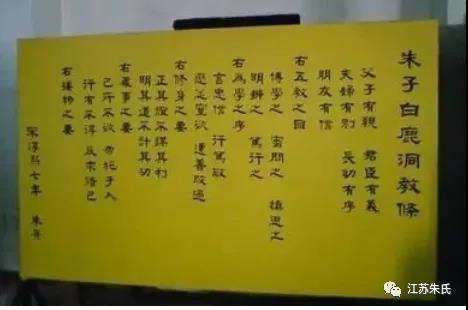 朱子白鹿洞教條
父子有親 君臣有義
夫婦有別 長幼有序
朋友有信
右五教之目
博學之 審問之 慎思之
明辨之 篤行之
右為學之序
言忠信 行篤敬
懲忿窒欲 遷善改過
右修身之要
正其誼不謀其利
明其道不計其功
右處事之要
己所不欲 勿施于人
行有不得 反求諸己
右接物之要
宋淳熙七年 朱熹
江苏朱氏